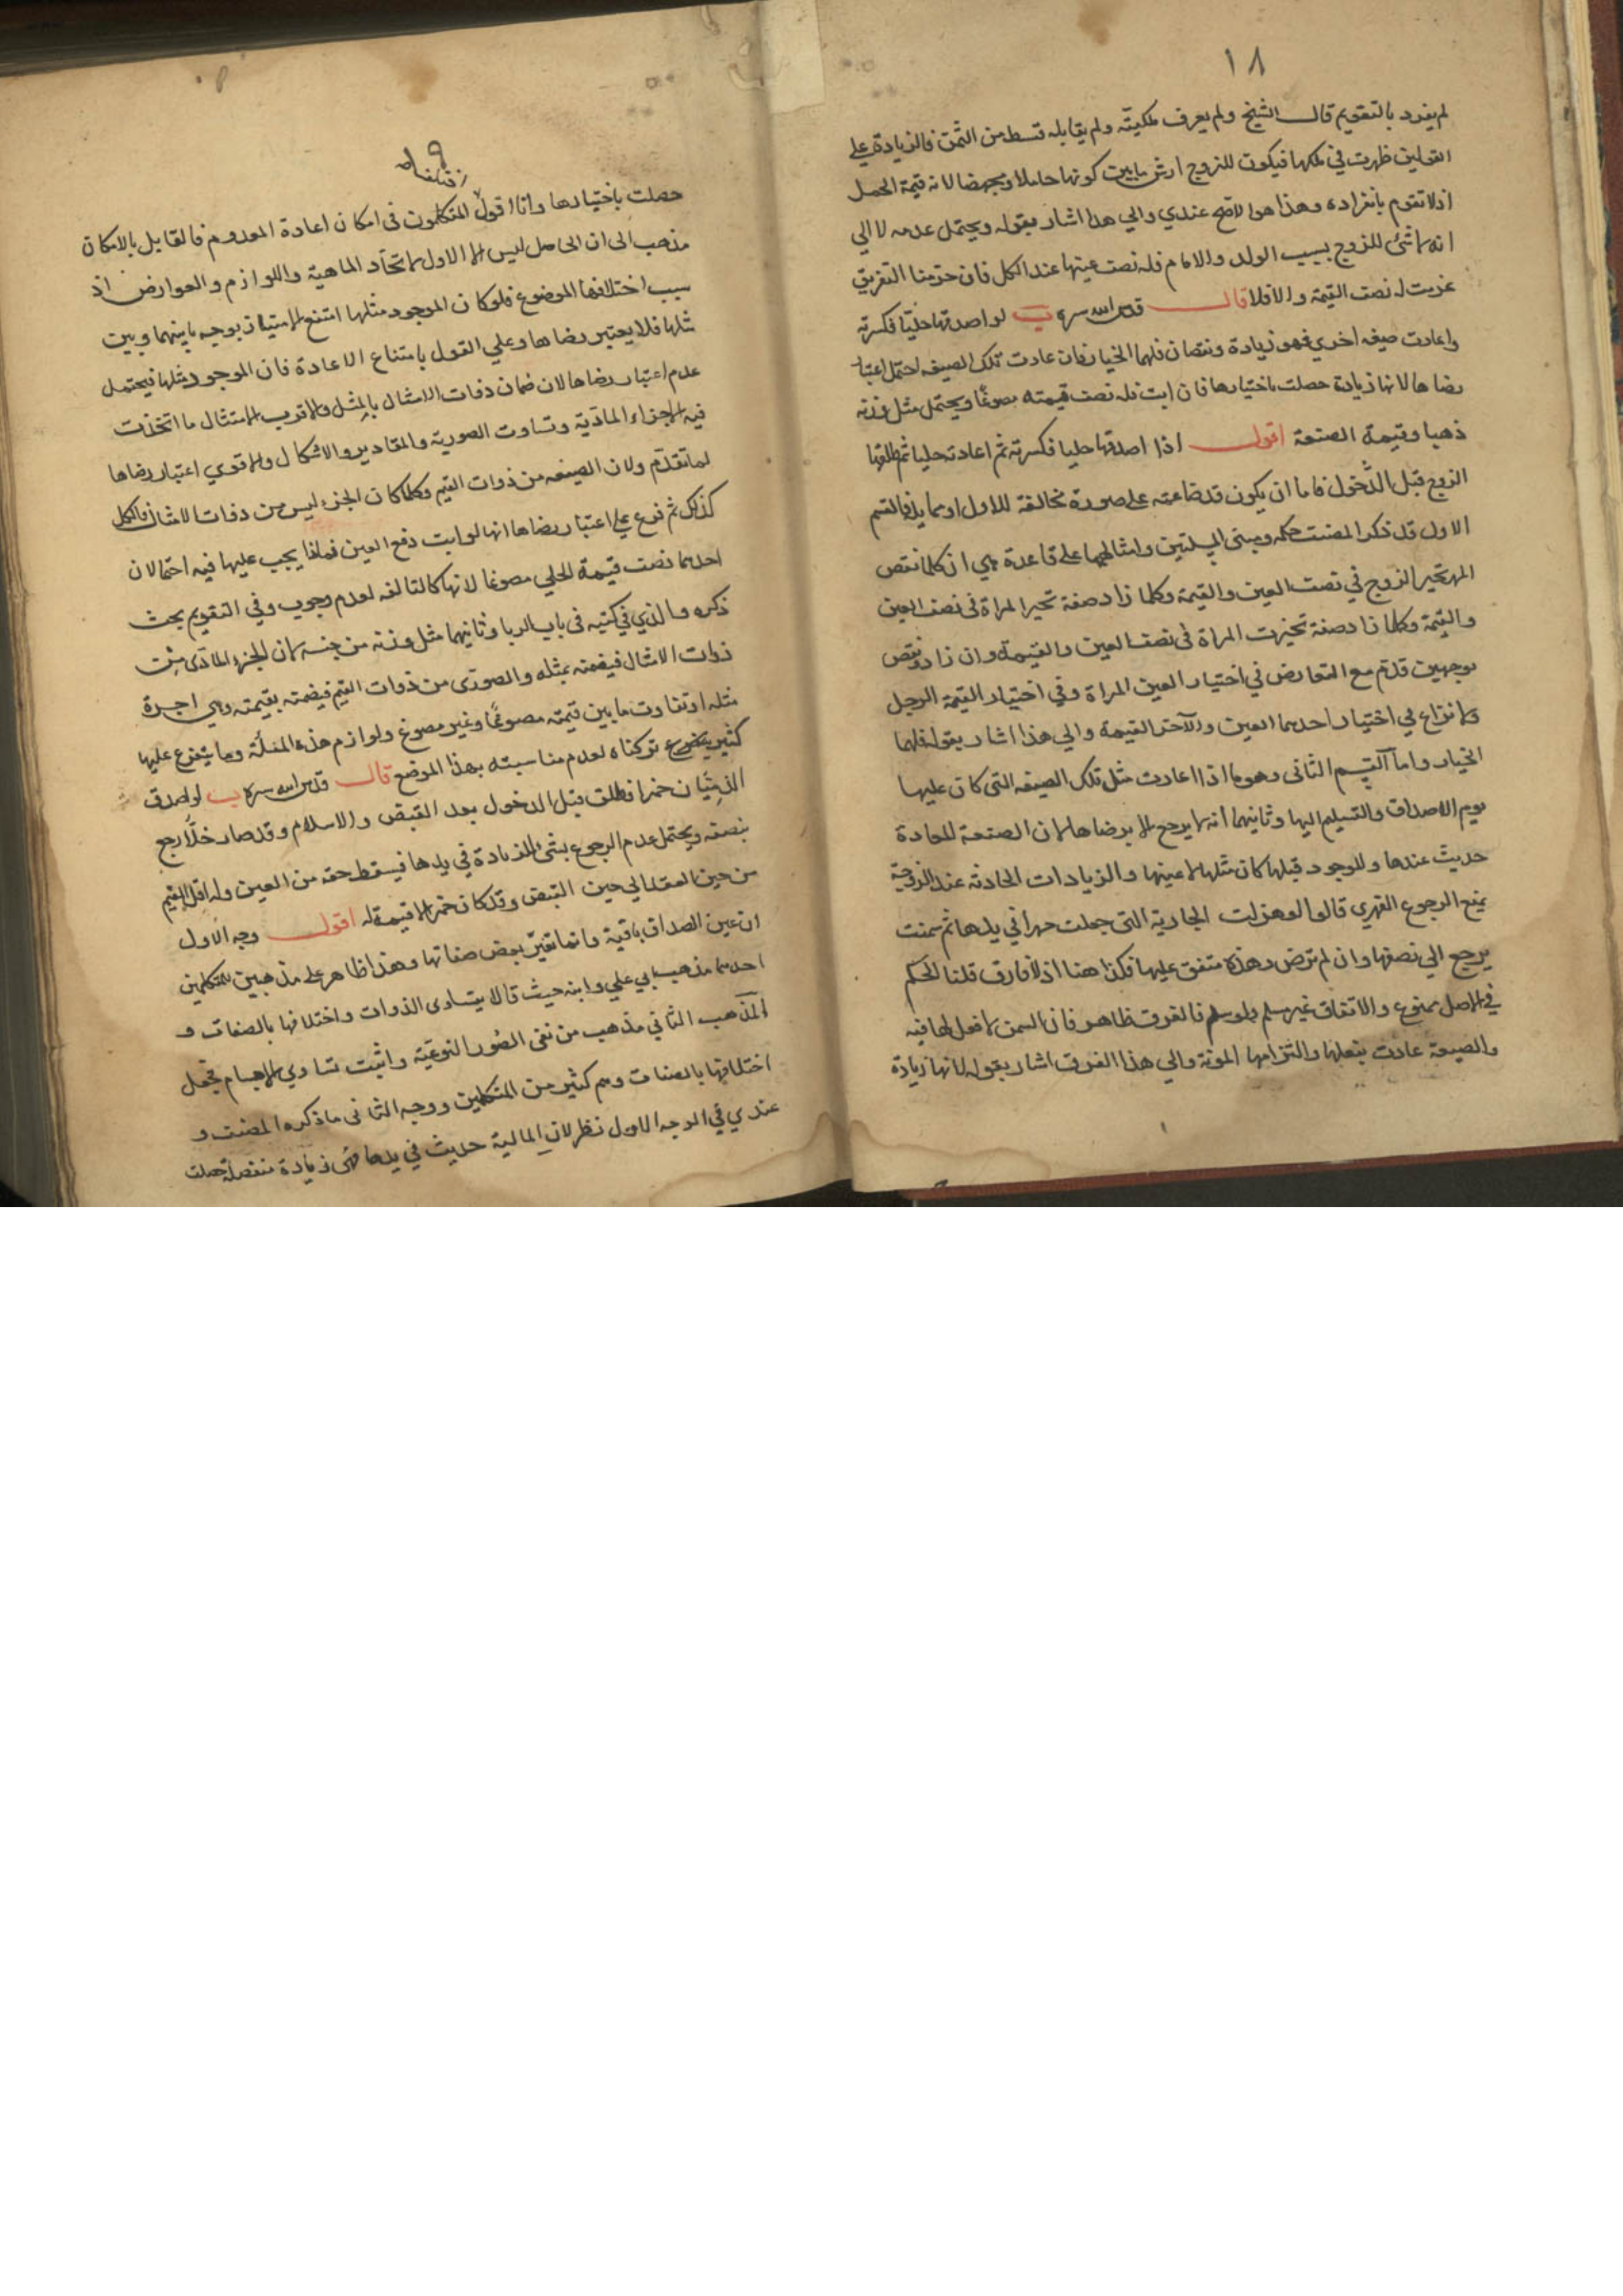 ١٨
لم يفرد بالتقويم قال الشيخ ولم يعرف ملكيته ولم يقابله قسط من الثمن فالزيادة على
القولين ظهرت في ملكها فيكون للزوج ارش ما بين كونها حاملا ومجهضا لانه قيمة الحمل
اذ لا تقوم بانفراده وهذا هو الاصح عندي والى هذا اشار بقوله ويحتمل عدمه لا الى
انه لا شئ للزوج بسبب الولد والا مام فله نصف عينها عند الكل فان حرمنا التفريق
غرمت له نصف القيمة والا فلا قال قدس الله سره ب لو اصدقها حليا فكسرته
واعادت صيغه اخرى فهو زيادة ونقصان فلهما الخيار فان عادت تلك الصيغه احتمل اعتبار
رضاها لانها زيادة حصلت باختيارها فان ابت فله نصف قيمته مصوغا ويحتمل مثل وزنه
ذهبا وقيمة الصنعة اقول اذا اصدقها حليا فكسرته ثم اعادته حليا ثم طلقها
الزوج قبل الدخول فاما ان يكون قد صاغته على صورة مخالفة للاول او مما فالقسم
الاول قد ذكر المصنف حكمه ومبنى المسئلتين وامثالهما على قاعدة هي ان كلما نقص
المهر تخير الزوج في نصف العين والقيمة وكلما زاد صفة تخير المراة في نصف العين
والقيمة وكلما زاد صفة تخيرت المراة في نصف العين والقيمة وان زاد ونقص
بوجهين قدم مع التعارض في اختيار العين المراة وفي اختيار القيمة الرجل
ولا نزاع في اختيار احدهما العين والآخر القيمة والى هذا اشار بقوله فلهما
الخيار واما القسم الثانى وهو ما اذا اعادت مثل تلك الصيغه التى كان عليها
يوم الاصداق والتسليم اليها وثانيهما انه لا يرجع الا برضاها لان الصنعة المعادة
حديث عندها والموجود قبلها كان مثلها لا عينها والزيادات الحادثه عند الزوجة
يمنع الرجوع القهري قالوا لو هزلت الجارية التى جعلت مهرا في يدها ثم سمنت
يرجع الى نصفها وان لم ترض وهذه متفق عليها فكذا هنا اذ لا فارق قلنا الحكم
في الاصل ممنوع والاتفاق غير مسلم ولو سلم فالفرق ظاهر فان السمن لا فعل لها فيه
والصيغة عادت بفعلها والتزامها المونة والى هذا الفرق اشار بقوله لانها زيادة
حصلت باختيارها وانا اقول المتكلمون في امكان اعادة المعدوم فالقايل بالامكان
مذهب الى ان الحاصل ليس الا الاول لاتحاد الماهية واللوازم والعوارض اذ
سبب اختلافها الموضوع فلو كان الموجود مثلها امتنع الامتياز بوجه ما بينهما وبين
مثلها فلا يعتبر رضاها وعلى القول بامتناع الاعادة فان الموجود مثلها فيحتمل
عدم اعتبار رضاها لان ضمان ذوات الامثال بالمثل والاقرب الامتثال ما اتخذت
فيه الاجزاء المادية وتساوت الصورية والمقادير والاشكال والاقوى اعتبار رضاها
لما تقدم ولان الصيغه من ذوات القيم وكلما كان الجزء ليس من ذوات الامثال فالكل
كذلك ثم فرع على اعتبار رضاها انها لو ابت دفع العين فماذا يجب عليها فيه احتمالان
احدهما نصف قيمة الحلي مصوغا لانها كالتالفه لعدم وجوب وفي التقويم بحث
ذكره والذي في كتبه في باب الربا وثانيهما مثل وزنه من جنسه لان الجزء المادى من
ذوات الامثال فيضمنه بمثله والصورى من ذوات القيم فيضمنه بقيمته وهي اجرة
مثله او تفاوت ما بين قيمته مصوغا وغير مصوغ ولوازم هذه المسئلة وما يتفرع عليها
كثير تركناه لعدم مناسبته بهذا الموضع قال قدس الله سره ب لو اصدق
الذميان خمرا فطلق قبل الدخول بعد القبض والاسلام وقد صار خلا رجع
بنصفه ويحتمل عدم الرجوع بشئ للزيادة في يدها فيسقط حقه من العين وله اقل القيم
من حين العقد الى حين القبض وقد كان خمرا لا قيمة له اقول وجه الاول
ان عين الصداق باقية وانما تغير بعض صفاتها وهذا ظاهر على مذهبين للمتكلمين
احدهما مذهب ابي علي وابنه حيث قالا بتساوى الذوات واختلافها بالصفات و
المذهب الثاني مذهب من نفى الصور النوعية واثبت تساوي الاجسام فجعل
اختلافها بالصفات وهم كثير من المتكلمين ووجه الثانى ما ذكره المصنف و
عندي في الوجه الاول نظر لان المالية حديث في يدها فهى زيادة منفصلة حصلت